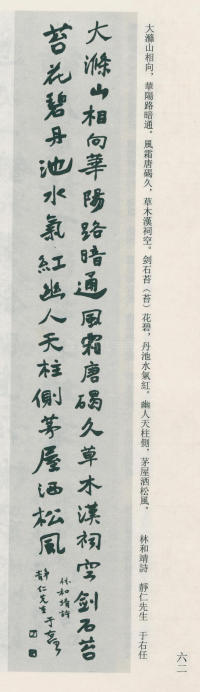 大滌山相向，華陽路暗通，風霜唐碣久，草木漢祠空。剑石苔（苔）花碧，丹池水氣紅。幽人天柱側，茅屋洒松風。　林和靖詩　靜仁先生　于右任
大滌山相向華陽路暗通風霜唐碣久草木漢祠空劍石苔
苔花碧丹池水氣紅幽人天柱側茅屋洒松風
林和靖詩
靜仁先生 于右任
六二